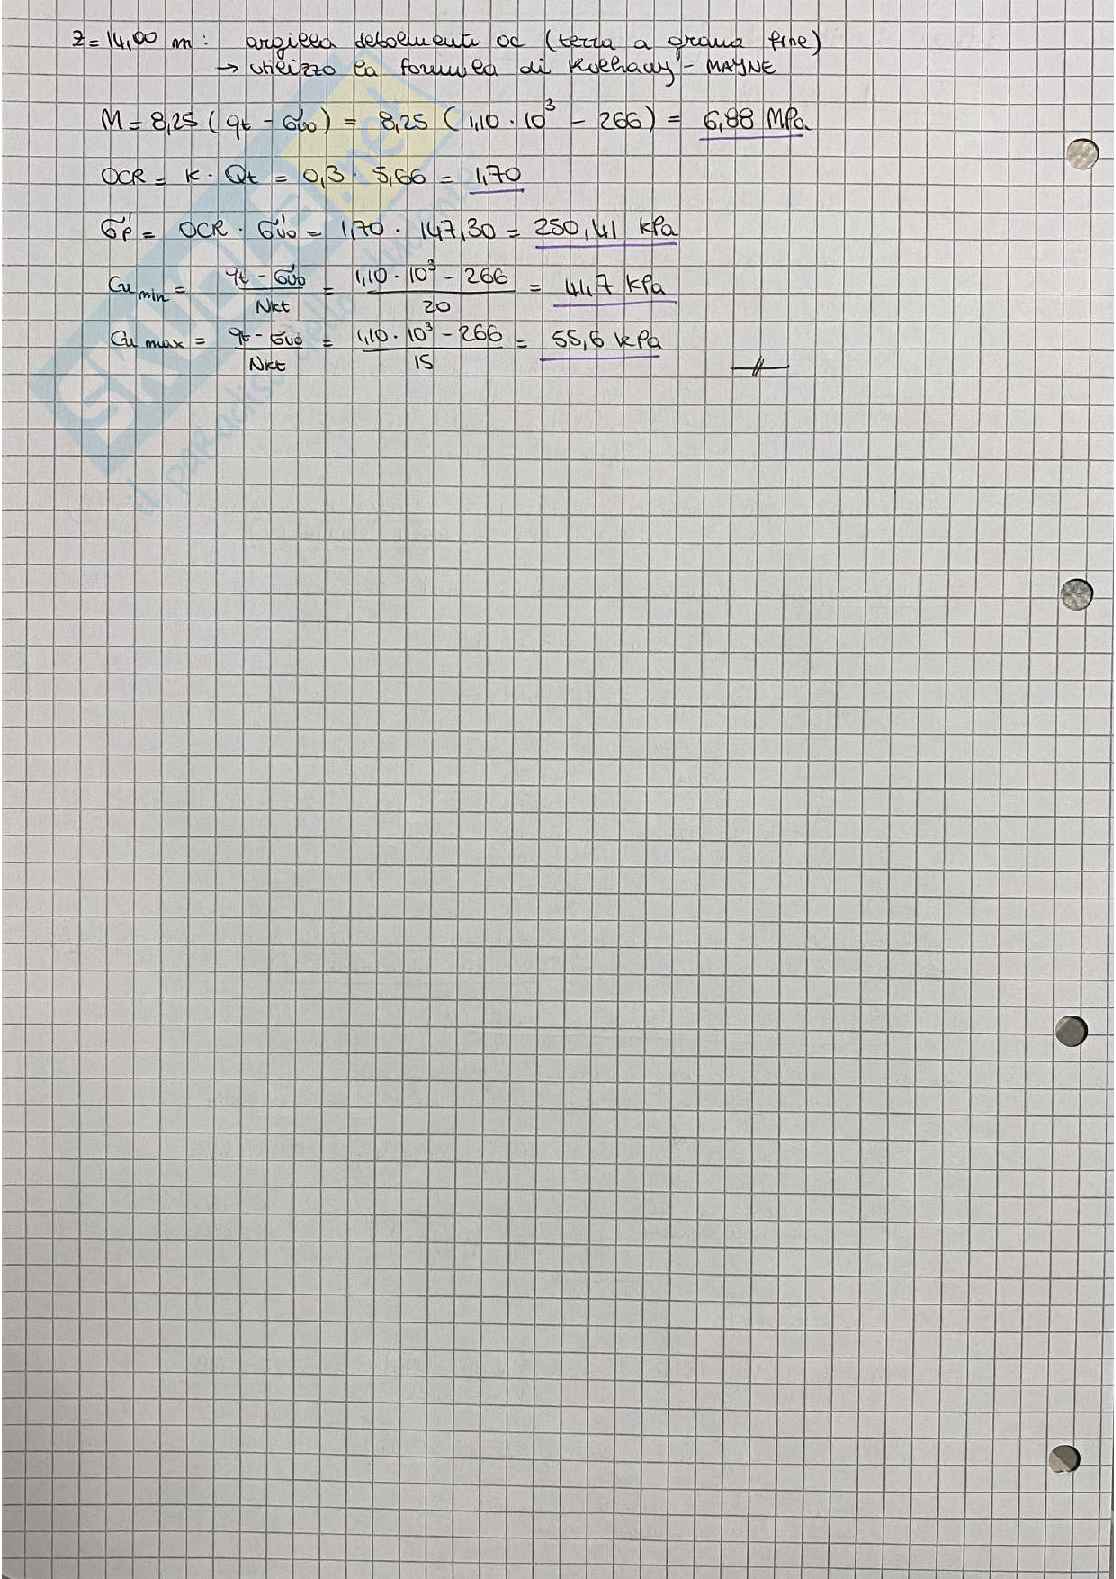 z = 14,00 m : argilla debolmente OC (terra a grana fine)
→ utilizzo la formula di Kulhawy - MAYNE
M = 8,25 (qt - σvo) = 8,25 (1,10 · 10³ - 266) = 6,88 MPa
OCR = K · Qt = 0,3 · 5,66 = 1,70
σ'p = OCR · σ'vo = 1,70 · 147,30 = 250,41 kPa
Cu min = qt - σvo / Nkt = 1,10 · 10³ - 266 / 20 = 41,7 kPa
Cu max = qt - σvo / Nkt = 1,10 · 10³ - 266 / 15 = 55,6 kPa
SKUOLA.net